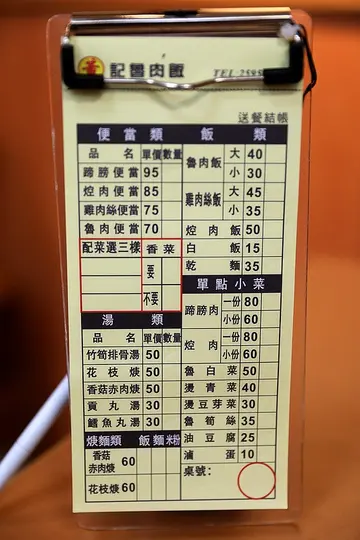 黃 記魯肉飯 TEL:2595
送餐結帳
便當類
品名 單價 數量
蹄膀便當 95
焢肉便當 85
雞肉絲便當 75
魯肉便當 70
配菜選三樣 香菜
要
不要
湯類
品名 單價 數量
竹筍排骨湯 50
花枝焿 50
香菇赤肉焿 50
貢丸湯 30
鱈魚丸湯 30
焿麵類 飯 麵 米粉
香菇赤肉焿 60
花枝焿 60
飯類
魯肉飯 大 40
小 30
雞肉絲飯 大 45
小 35
焢肉飯 50
白飯 15
乾麵 35
單點小菜
蹄膀肉 一份 80
小份 60
焢肉 一份 80
小份 60
魯白菜 50
燙青菜 40
燙豆芽菜 30
魯筍絲 35
油豆腐 25
滷蛋 10
桌號: